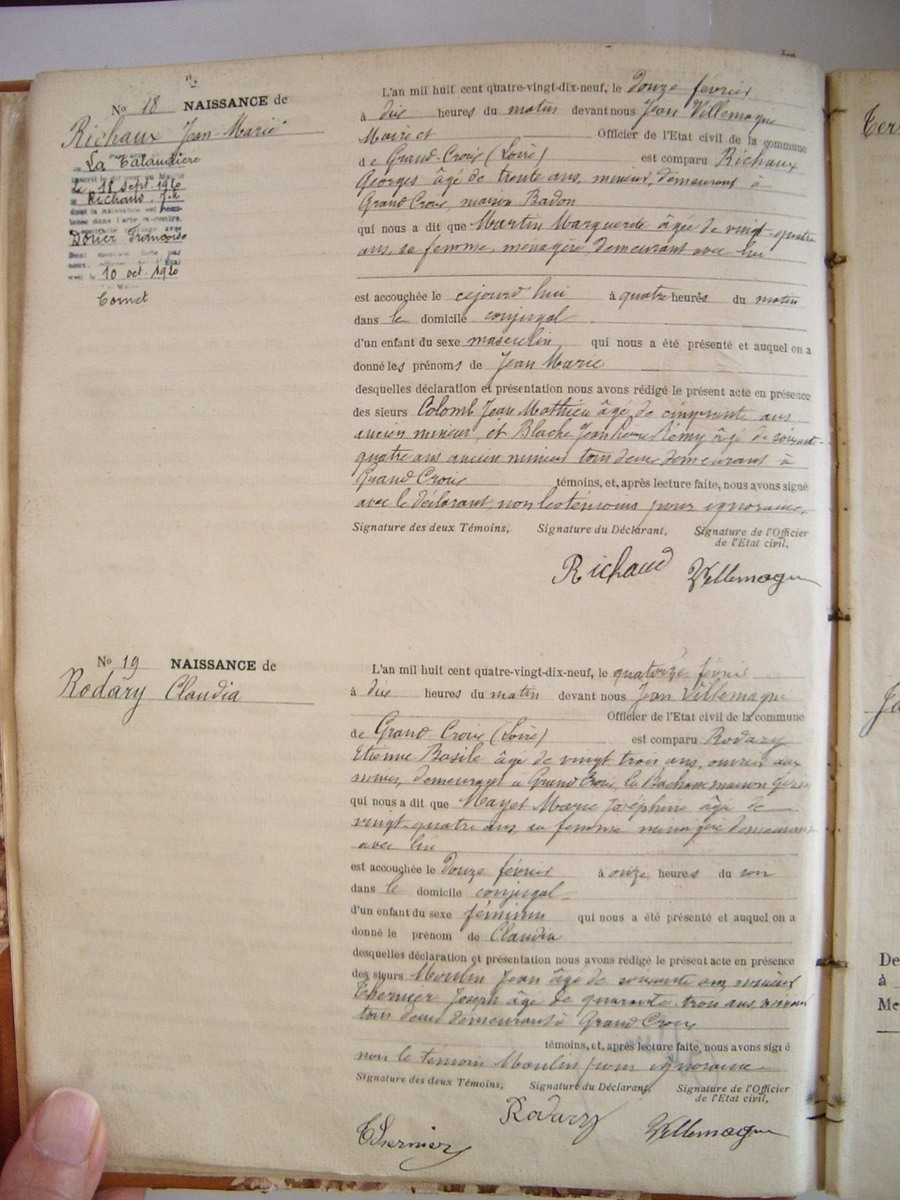 No 18 NAISSANCE de
Richaux Jean-Marie
La Talaudière
le 18 sept. 1920
Richaud J.M.
10 oct. 1920
Comet
L'an mil huit cent quatre-vingt-dix-neuf, le douze février
à dix heures du matin devant nous Jean Villemagne
Maire et Officier de l'Etat civil de la commune
de Grand-Croix (Loire) est comparu Richaux
Georges âgé de trente ans, mineur, demeurant à
Grand Croix, maison Badon
qui nous a dit que Martin Marguerite âgée de vingt-quatre
ans, sa femme, ménagère demeurant avec lui
est accouchée le cejourd'hui à quatre heures du matin
dans le domicile conjugal
d'un enfant du sexe masculin qui nous a été présenté et auquel on a
donné les prénoms de Jean Marie
desquelles déclaration et présentation nous avons rédigé le présent acte en présence
des sieurs Colomb Jean Mathieu âgé de cinquante ans
ancien mineur, et Blache Jean Rémy âgé de soixante
quatre ans ancien mineur tous deux demeurant à
Grand Croix témoins, et, après lecture faite, nous avons signé
avec le déclarant, non les témoins pour ignorance.
Signature des deux Témoins, Signature du Déclarant, Signature de l'Officier
de l'Etat civil,
Richaud Villemagne
No 19 NAISSANCE de
Rodary Claudia
L'an mil huit cent quatre-vingt-dix-neuf, le quatorze février
à dix heures du matin devant nous Jean Villemagne
Officier de l'Etat civil de la commune
de Grand Croix (Loire) est comparu Rodary
Etienne Basile âgé de vingt trois ans, ouvrier aux
mines, demeurant à Grand Croix, le Bachas maison
qui nous a dit que Mayet Marie Joséphine âgée de
vingt-quatre ans sa femme ménagère demeurant
avec lui
est accouchée le douze février à onze heures du soir
dans le domicile conjugal
d'un enfant du sexe féminin qui nous a été présenté et auquel on a
donné le prénom de Claudia
desquelles déclaration et présentation nous avons rédigé le présent acte en présence
des sieurs Moulin Jean âgé de soixante ans
Thernier Joseph âgé de quarante trois ans
tous deux demeurant à Grand Croix
témoins, et, après lecture faite, nous avons signé
non le témoin Moulin pour ignorance.
Signature des deux Témoins, Signature du Déclarant, Signature de l'Officier
de l'Etat civil,
Rodary Villemagne
Thernier
De
à
Me